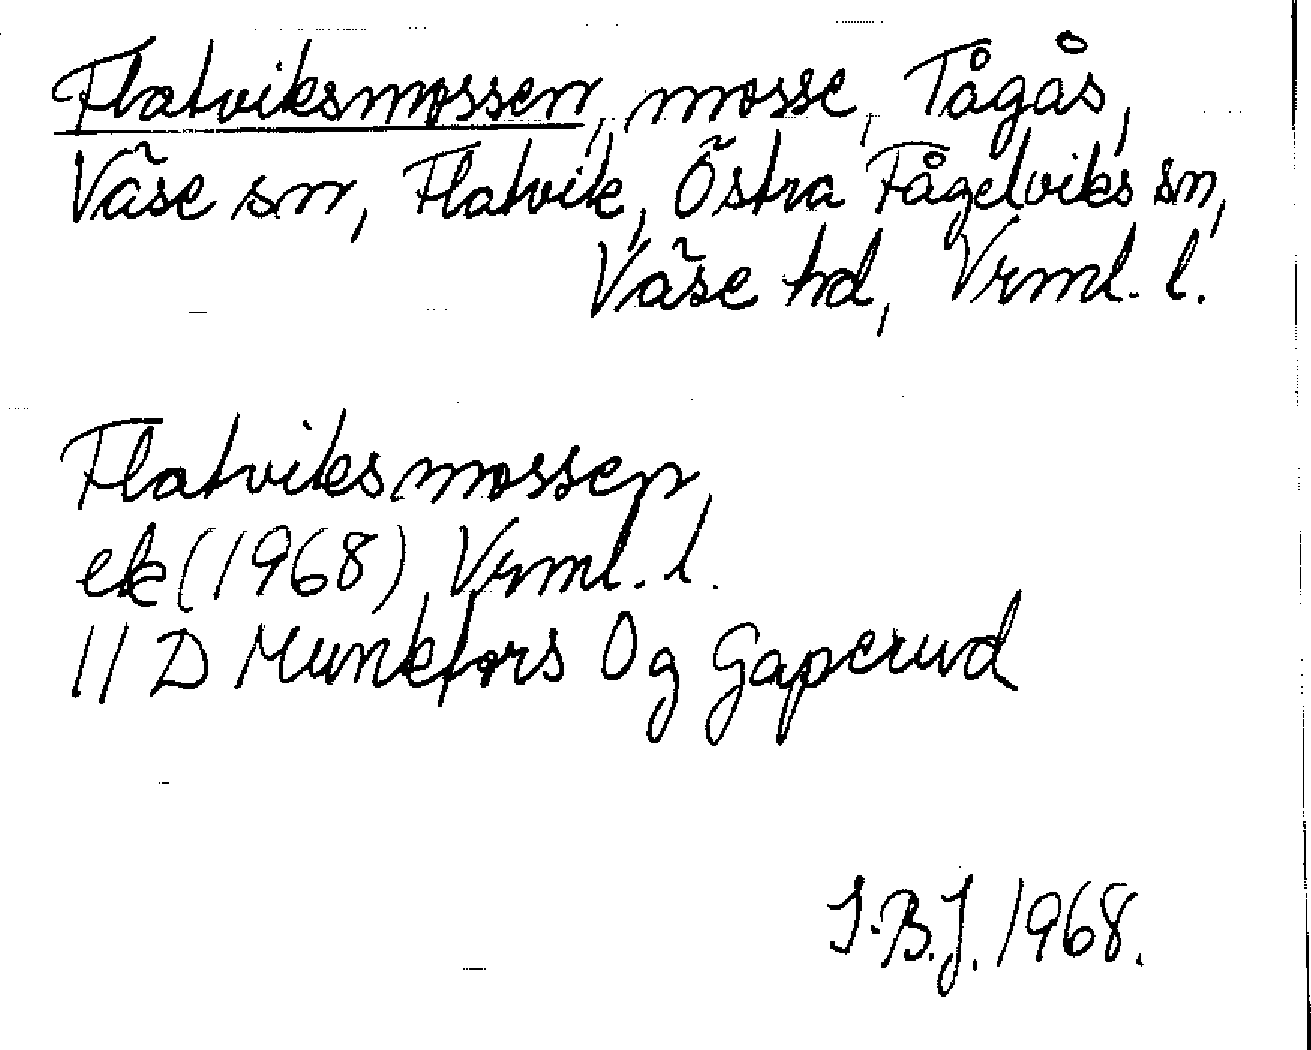 Flatviksmossen, mosse, Tågås,
Väse sn, Flatvik, Östra Fågelviks sn,
Väse hd, Vrml. l.
Flatviksmossen,
ek (1968), Vrml. l.
11 D Munkfors 0g Gaperud
I.B.J. 1968.